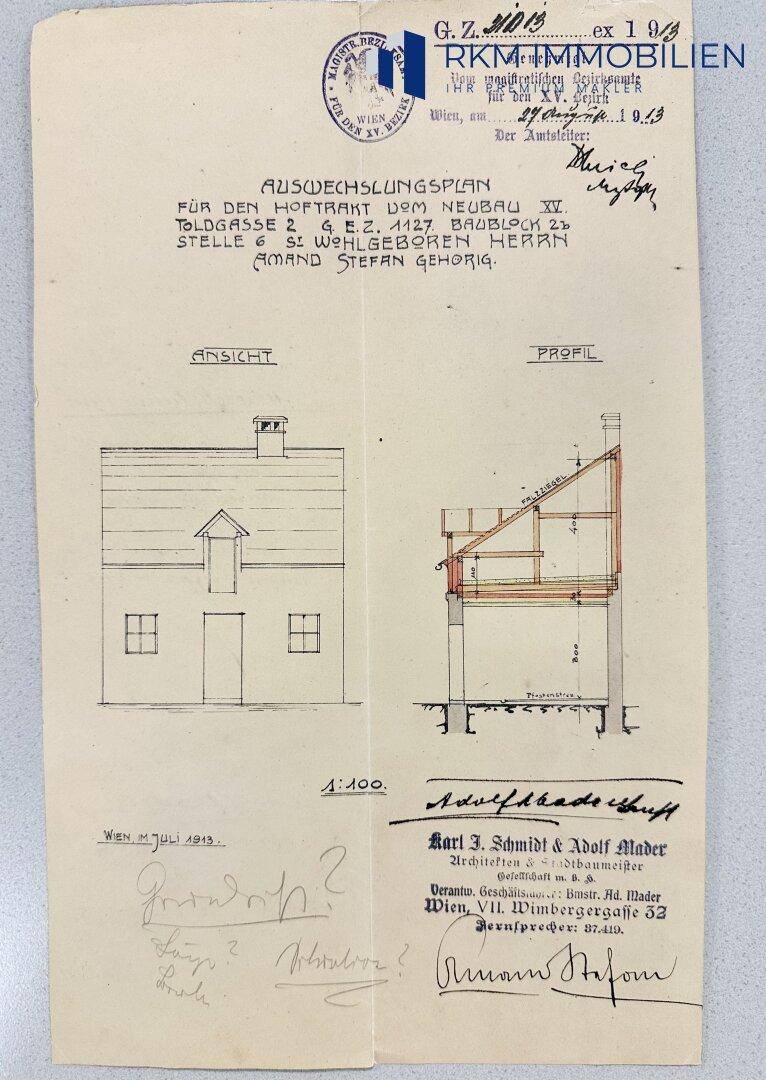 G. Z. 21013 ex 1913
RKM IMMOBILIEN
IHR PREMIUM MAKLER
Genehmigt
Vom magistratischen Bezirksamte
für den XV. Bezirk
Wien, am 27 August 1913
Der Amtsleiter:
MAGISTR. BEZIRKSAMT
FÜR DEN XV. BEZIRK
WIEN
AUSWECHSLUNGSPLAN
FÜR DEN HOFTRAKT VOM NEUBAU XV.
TOLDGASSE 2 G. E.Z. 1127. BAUBLOCK 2b
STELLE 6 SR WOHLGEBOREN HERRN
AMAND STEFAN GEHÖRIG.
ANSICHT
PROFIL
FALZZIEGEL
400
300
1:100.
WIEN, IM JULI 1913.
Karl J. Schmidt & Adolf Mader
Architekten & Stadtbaumeister
Gesellschaft m. b. H.
Verantw. Geschäftsführer: Bmstr. Ad. Mader
Wien, VII. Wimbergergasse 32
Fernsprecher: 37.419.
Grundriß?
Länge?
Situation?
Amand Stefan